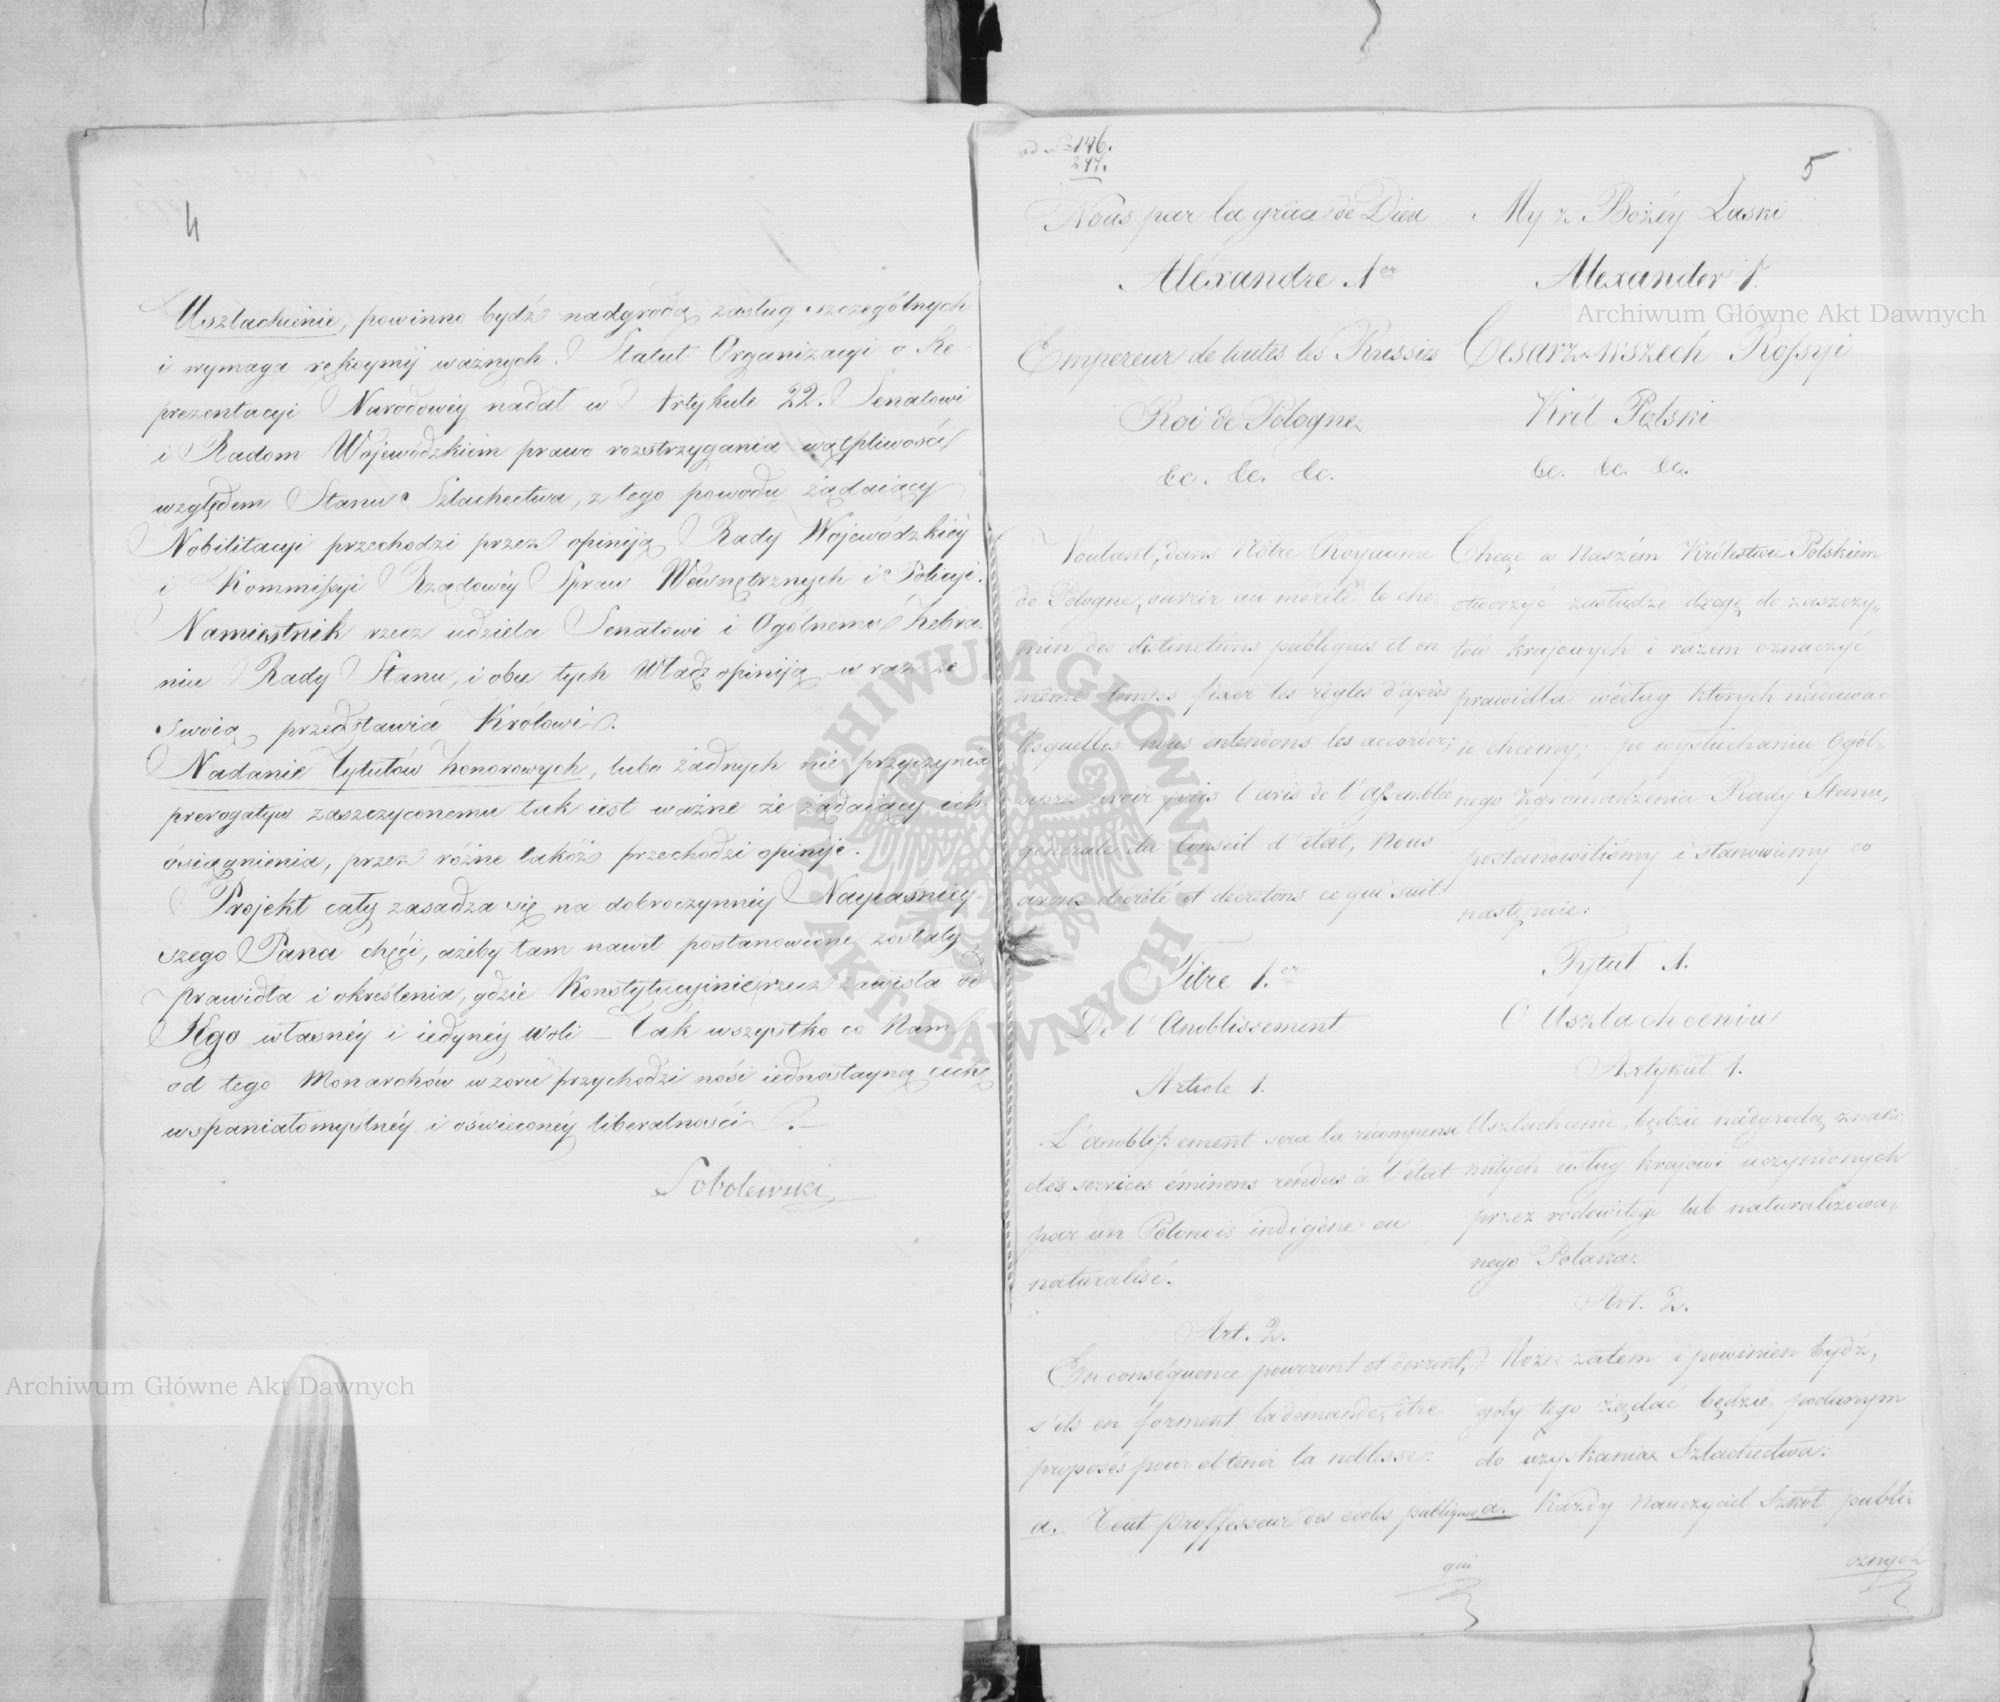 4
Uszlachcenie, powinno bydź nadgrodą zasług szczególnych
i wymaga rękoymij ważnych. Statut Organizacyi o Re-
prezentacyi Narodowéy nadał w Artykule 22. Senatowi
i Radom Wojewódzkiem prawo rozstrzygania wątpliwości
względem Stanu Szlachectwa, z tego powodu żądaiący
Nobilitacyi przechodzi przez opiniją Rady Wojewódzkiéy
i Kommissyi Rządowéy Spraw Wewnętrznych i Policyi.
Namiestnik rzecz udziela Senatowi i Ogólnemu Zebra-
niu Rady Stanu, i obu tych Władz opiniją w raz ze
swoią przedstawia Królowi.
Nadanie tytułów honorowych, lubo żadnych nie przyczynia
prerogatyw zaszczyconemu tak iest ważne że żądaiący ich
osiągnienia, przez różne takóż przechodzi opinije.
Projekt cały zasadza się na dobroczynnéy Nayiaśniéy-
szego Pana chęci, ażeby tam nawet postanowione zostały
prawidła i określenia, gdzie Konstytucyinie rzecz zawisła od
Jego własnéy i iedynéy woli – Tak wszystko co Nam
od tego Monarchów wzoru przychodzi nosi iednostayną cechę
wspaniałomyślnéy i oświeconéy liberalności.–
Sobolewski
ad № 146.
247.
5
Nous par la grace de Dieu
Aléxandre 1er
Empereur de toutes les Russies
Roi de Pologne
&c. &c. &c.
Voulant, dans Nôtre Royaume
de Pologne, ouvrir au mérite le che-
min des distinctions publiques et en
même temps fixer les règles d'après
lesquelles nous entendons les accorder;
après avoir pris l'avis de l'Assemblée
générale du Conseil d'état, Nous
avons décrété et décretons ce qui suit
Titre 1.er
De l'Anoblissement
Article 1.
L'anoblissement sera la récompense
des services éminens rendus à l'état
par un Polonois indigène ou
naturalisé.
Art. 2.
En conséquence pouront et devront,
s'ils en forment la demande, être
proposés pour obtenir la noblesse:
a. Tout proffesseur des écoles publiques
qui
My z Bożéy Łaski
Alexander 1.
Cesarz wszech Rossyi
Król Polski
&c. &c. &c.
Chcąc w Naszém Królestwie Polskiem
otworzyć zasłudze drogę do zaszczy-
tów krajowych i razem oznaczyć
prawidła według których nadawać
ie chcemy; po wysłuchaniu Ogól-
nego Zgromadzenia Rady Stanu,
postanowiliśmy i stanowiemy co
następuie:
Tytuł 1.
O Uszlachceniu
Artykuł 1.
Uszlachcenie, będzie nadgrodą znako-
mitych usług krajowi uczynionych
przez rodowitego lub naturalizowa-
nego Polaka.
Art. 2.
Może zatem i powinien bydź,
gdy tego żądać będzie, podanym
do uzyskania Szlachectwa:
a. Każdy Nauczyciel Szkół publi-
cznych
Archiwum Główne Akt Dawnych
Archiwum Główne Akt Dawnych
ARCHIWUM GŁÓWNE AKT DAWNYCH